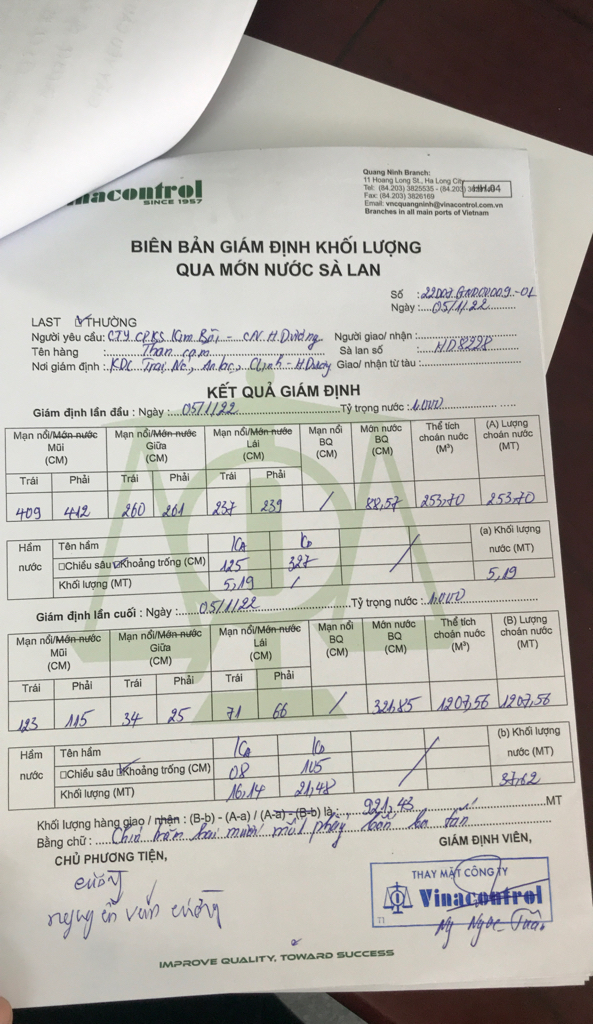 nacontrol
SINCE 1957
Quang Ninh Branch:
11 Hoang Long St., Ha Long City
Tel: (84.203) 3825535 - (84.203)
HH.04
Fax: (84.203) 3826169
Email: vncquangninh@vinacontrol.com.vn
Branches in all main ports of Vietnam
BIÊN BẢN GIÁM ĐỊNH KHỐI LƯỢNG
QUA MỚN NƯỚC SÀ LAN
Số :
Ngày : 05/1/22
LAST THƯỜNG
Người yêu cầu: CTY CPKS Kim Bôi - CN H. Dương Người giao/ nhận :
Tên hàng : Than cám Sà lan số : HD8228
Nơi giám định : KDC Giao/ nhận từ tàu :
KẾT QUẢ GIÁM ĐỊNH
Giám định lần đầu : Ngày : 05/1/22 Tỷ trọng nước : 1,000
Mạn nổi/Mớn nước Mũi (CM) Mạn nổi/Mớn nước Giữa (CM) Mạn nổi/Mớn nước Lái (CM) Mạn nổi BQ (CM) Mớn nước BQ (CM) Thể tích choán nước (M³) (A) Lượng choán nước (MT)
Trái Phải Trái Phải Trái Phải
409 412 260 261 237 239 / 88,57 253,70 253,70
Hầm nước Tên hầm (a) Khối lượng nước (MT)
Chiều sâu Khoảng trống (CM) 125 327
Khối lượng (MT) 5,19 / 5,19
Giám định lần cuối : Ngày : 05/1/22 Tỷ trọng nước : 1,000
Mạn nổi/Mớn nước Mũi (CM) Mạn nổi/Mớn nước Giữa (CM) Mạn nổi/Mớn nước Lái (CM) Mạn nổi BQ (CM) Mớn nước BQ (CM) Thể tích choán nước (M³) (B) Lượng choán nước (MT)
Trái Phải Trái Phải Trái Phải
123 115 34 25 71 66 / 321,85 1207,56 1207,56
Hầm nước Tên hầm (b) Khối lượng nước (MT)
Chiều sâu Khoảng trống (CM) 08 105
Khối lượng (MT) 16,14 21,48 37,62
Khối lượng hàng giao / nhận : (B-b) - (A-a) / (A-a) - (B-b) là : 921,43 MT
Bằng chữ : Chín trăm hai mươi mốt phẩy bốn ba tấn
CHỦ PHƯƠNG TIỆN, GIÁM ĐỊNH VIÊN,
THAY MẶT CÔNG TY
Vinacontrol
nguyễn văn cường
Ngọc Tuấn
IMPROVE QUALITY, TOWARD SUCCESS